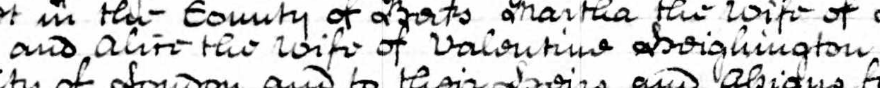 in the County of Berks Martha the Wife of
and Alice the Wife of Valentine Heighington
City of London and to their Heirs and Assigns